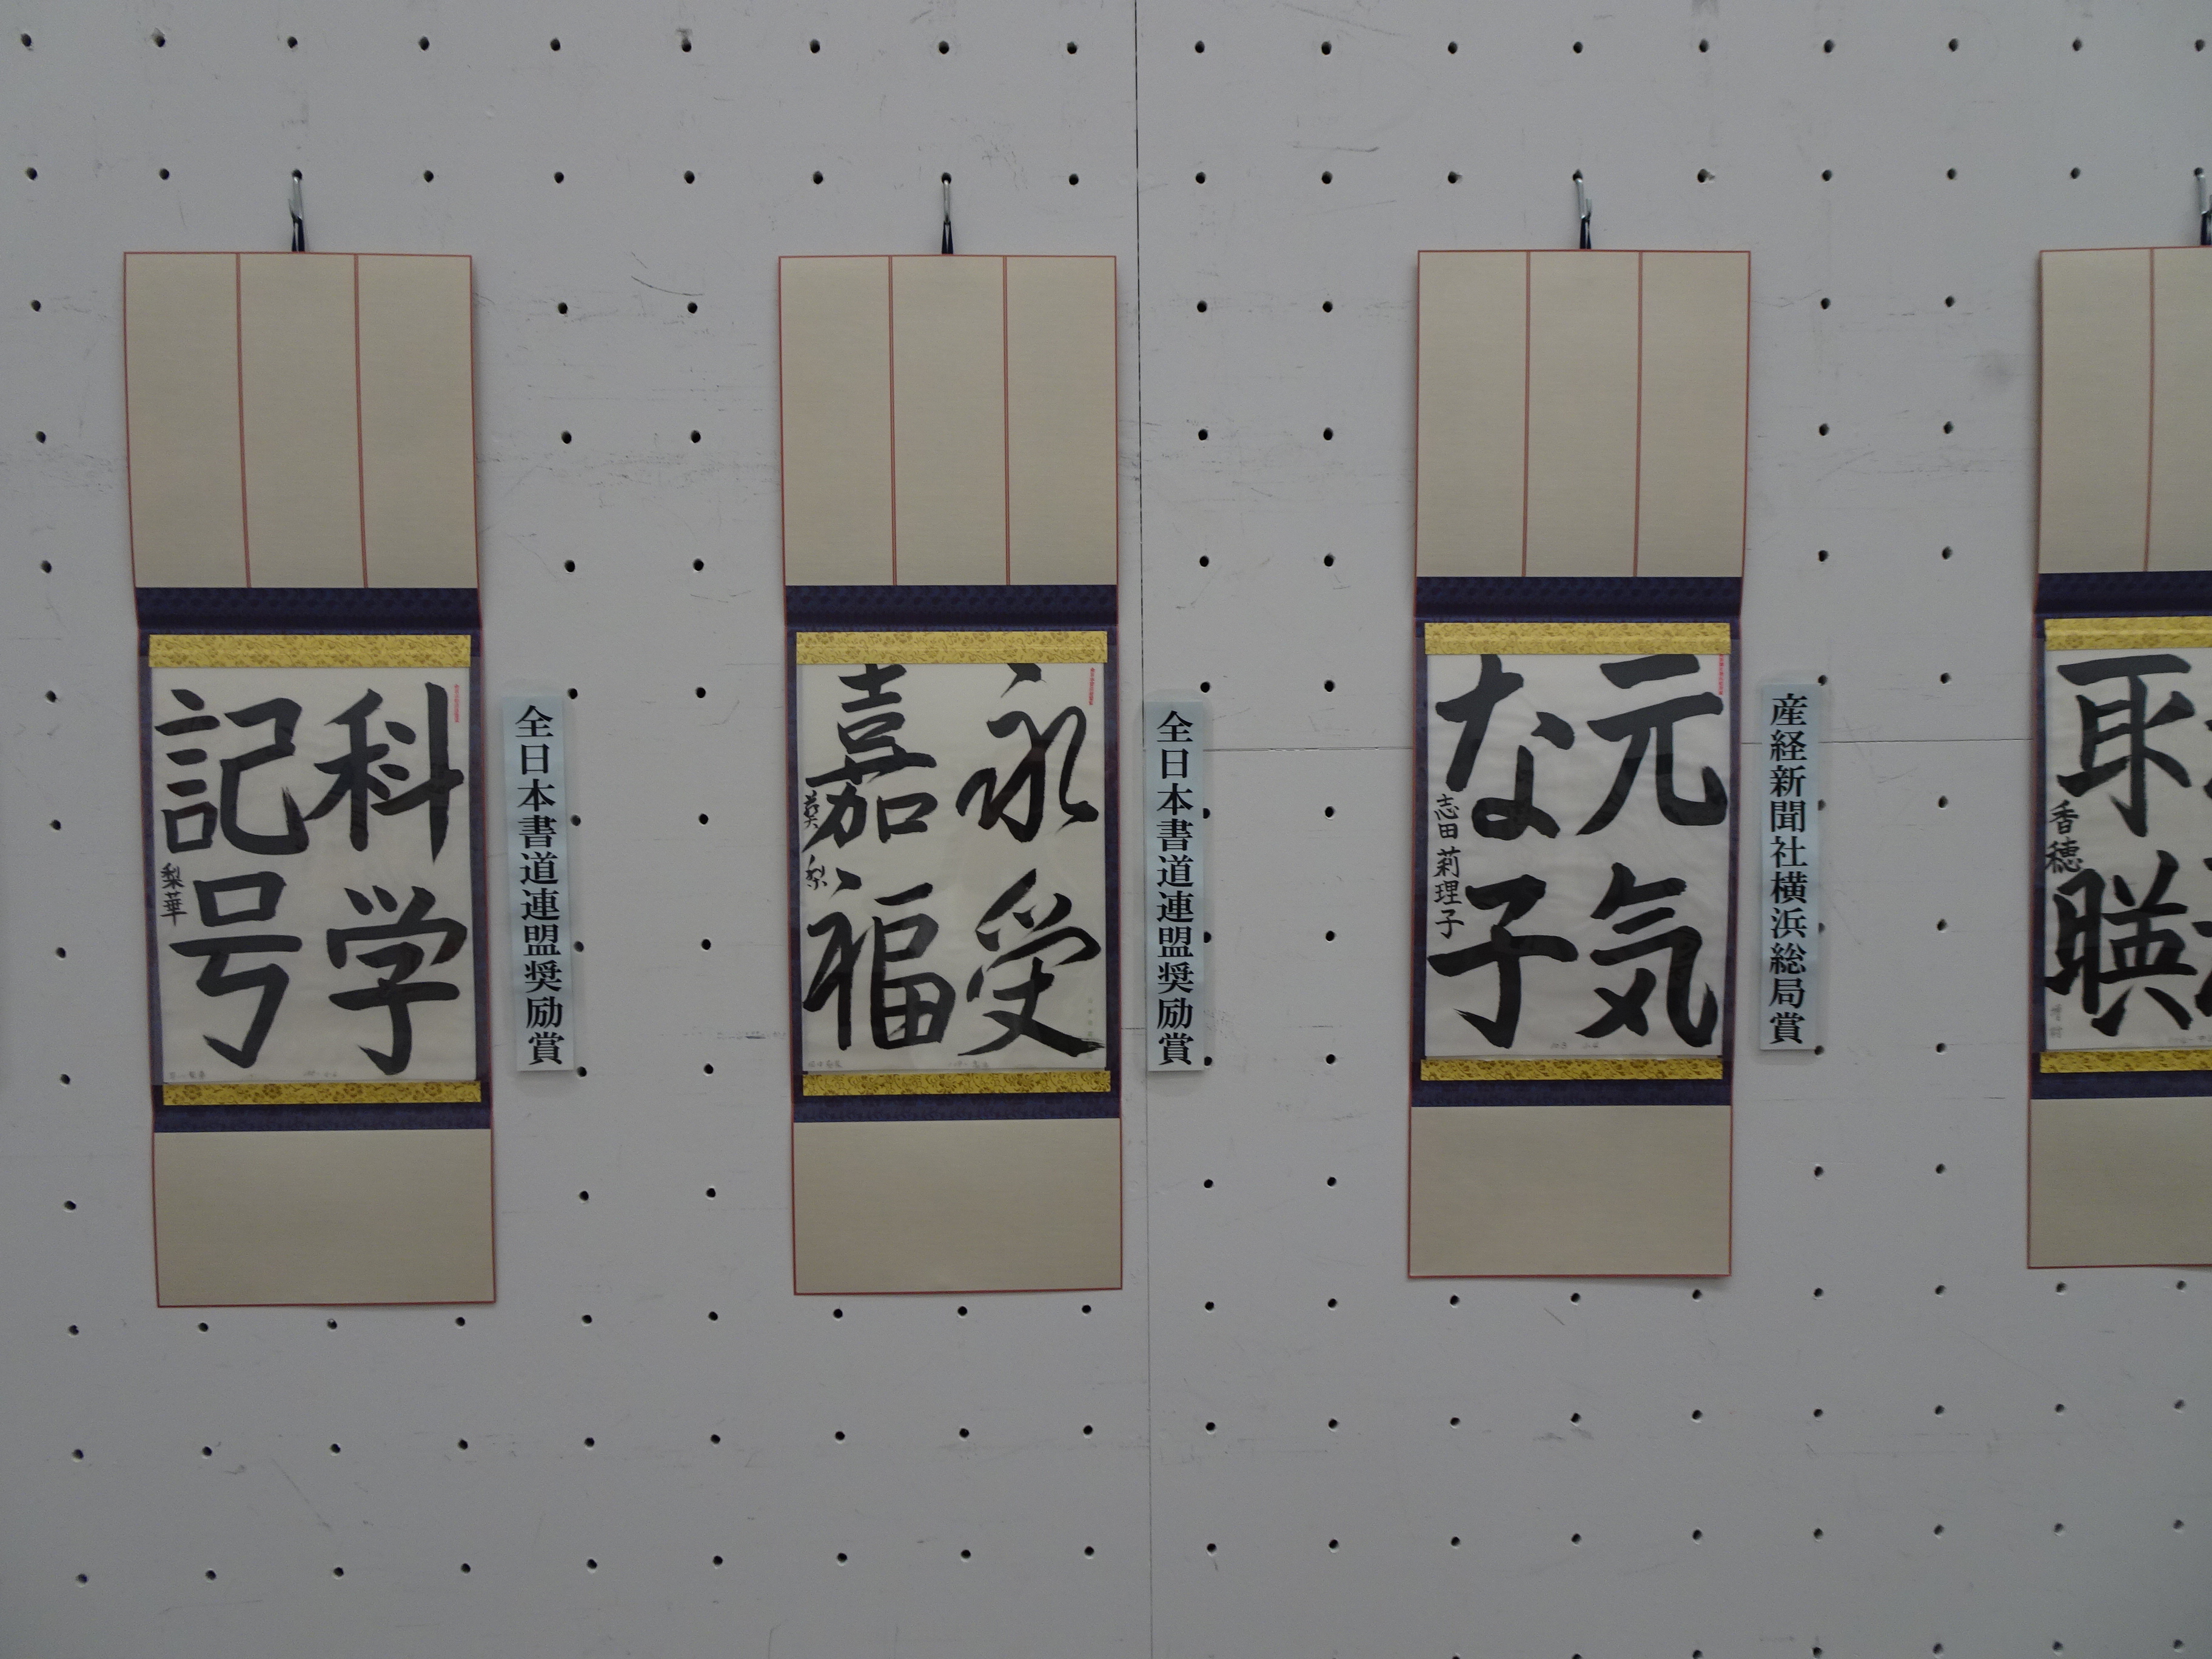 科学
記号
梨華
全日本書道連盟奨励賞
永受
嘉福
全日本書道連盟奨励賞
元気
な子
志田莉理子
産経新聞社横浜総局賞
取
暎
香穂